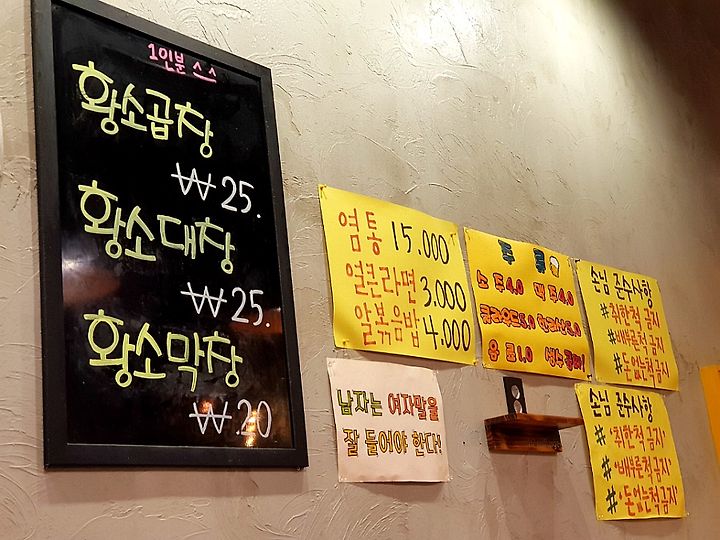 1인분 ^ ^
황소곱창
₩25.
황소대창
₩25.
황소막창
₩.20
염통 15.000
얼큰라면 3.000
알볶음밥 4.000
주류
소주4.0 맥주4.0
클라우드5.0 한라산5.0
음료1.0 생수공짜!
손님 준수사항
#취한척금지
#배부른척금지
#돈없는척금지
남자는 여자말을
잘 들어야 한다!
손님 준수사항
# '취한척금지'
# '배부른척금지'
# '돈없는척금지'